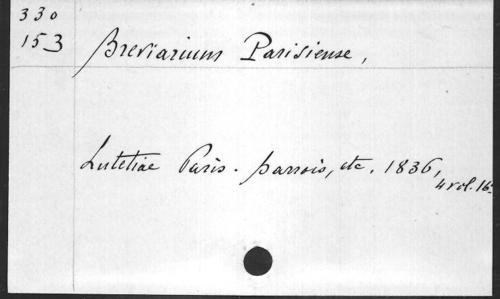 330
153
Breviarium Parisiense,
Lutetiae Paris. parrois, etc. 1836,
4 vol. 16º